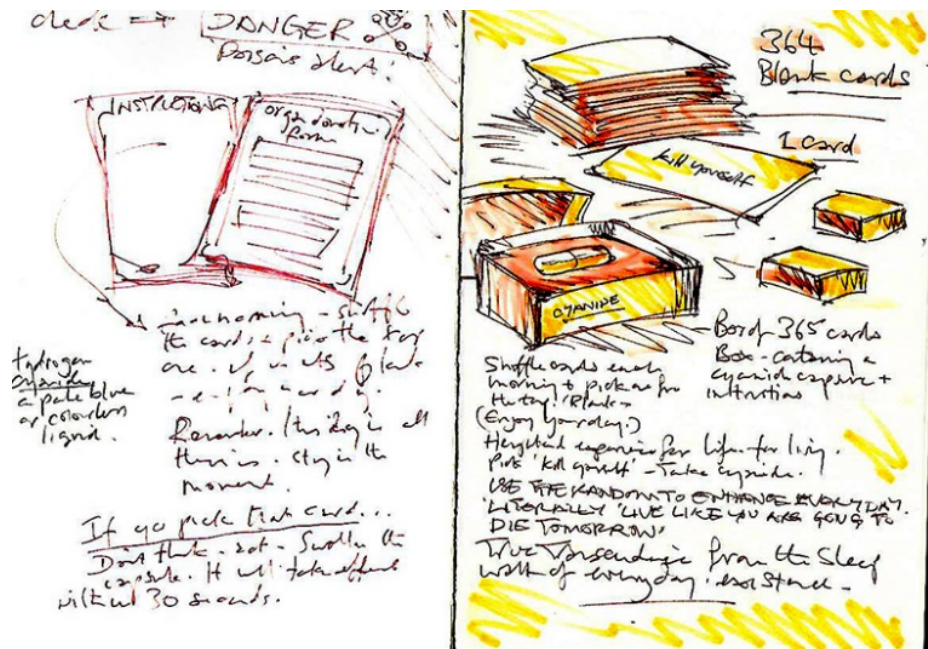 DANGER
Poisons alert!
INSTRUCTIONS
organ donation
form
Each morning - shuffle
the cards + pick the top
one. If it's blank
- enjoy your day.
Remember. This day is all
there is. Stay in the
moment.
Hydrogen
cyanide
a pale blue
or colourless
liquid.
If you pick that card...
Don't think - act - Swallow the
capsule. It will take effect
within 30 seconds.
364
Blank cards
1 card
kill yourself
CYANIDE
Box of 365 cards
Box - containing a
cyanide capsule +
instructions
Shuffle cards each
morning + pick one from
the top. Blank -
(Enjoy your day.)
Heightened experience for life - for living.
Pick 'kill yourself' - Take cyanide.
USE THE RANDOM TO ENHANCE EVERY DAY.
LITERALLY 'LIVE LIKE YOU ARE GOING TO
DIE TOMORROW'
True Transendence from the sleep
walk of everyday existance -